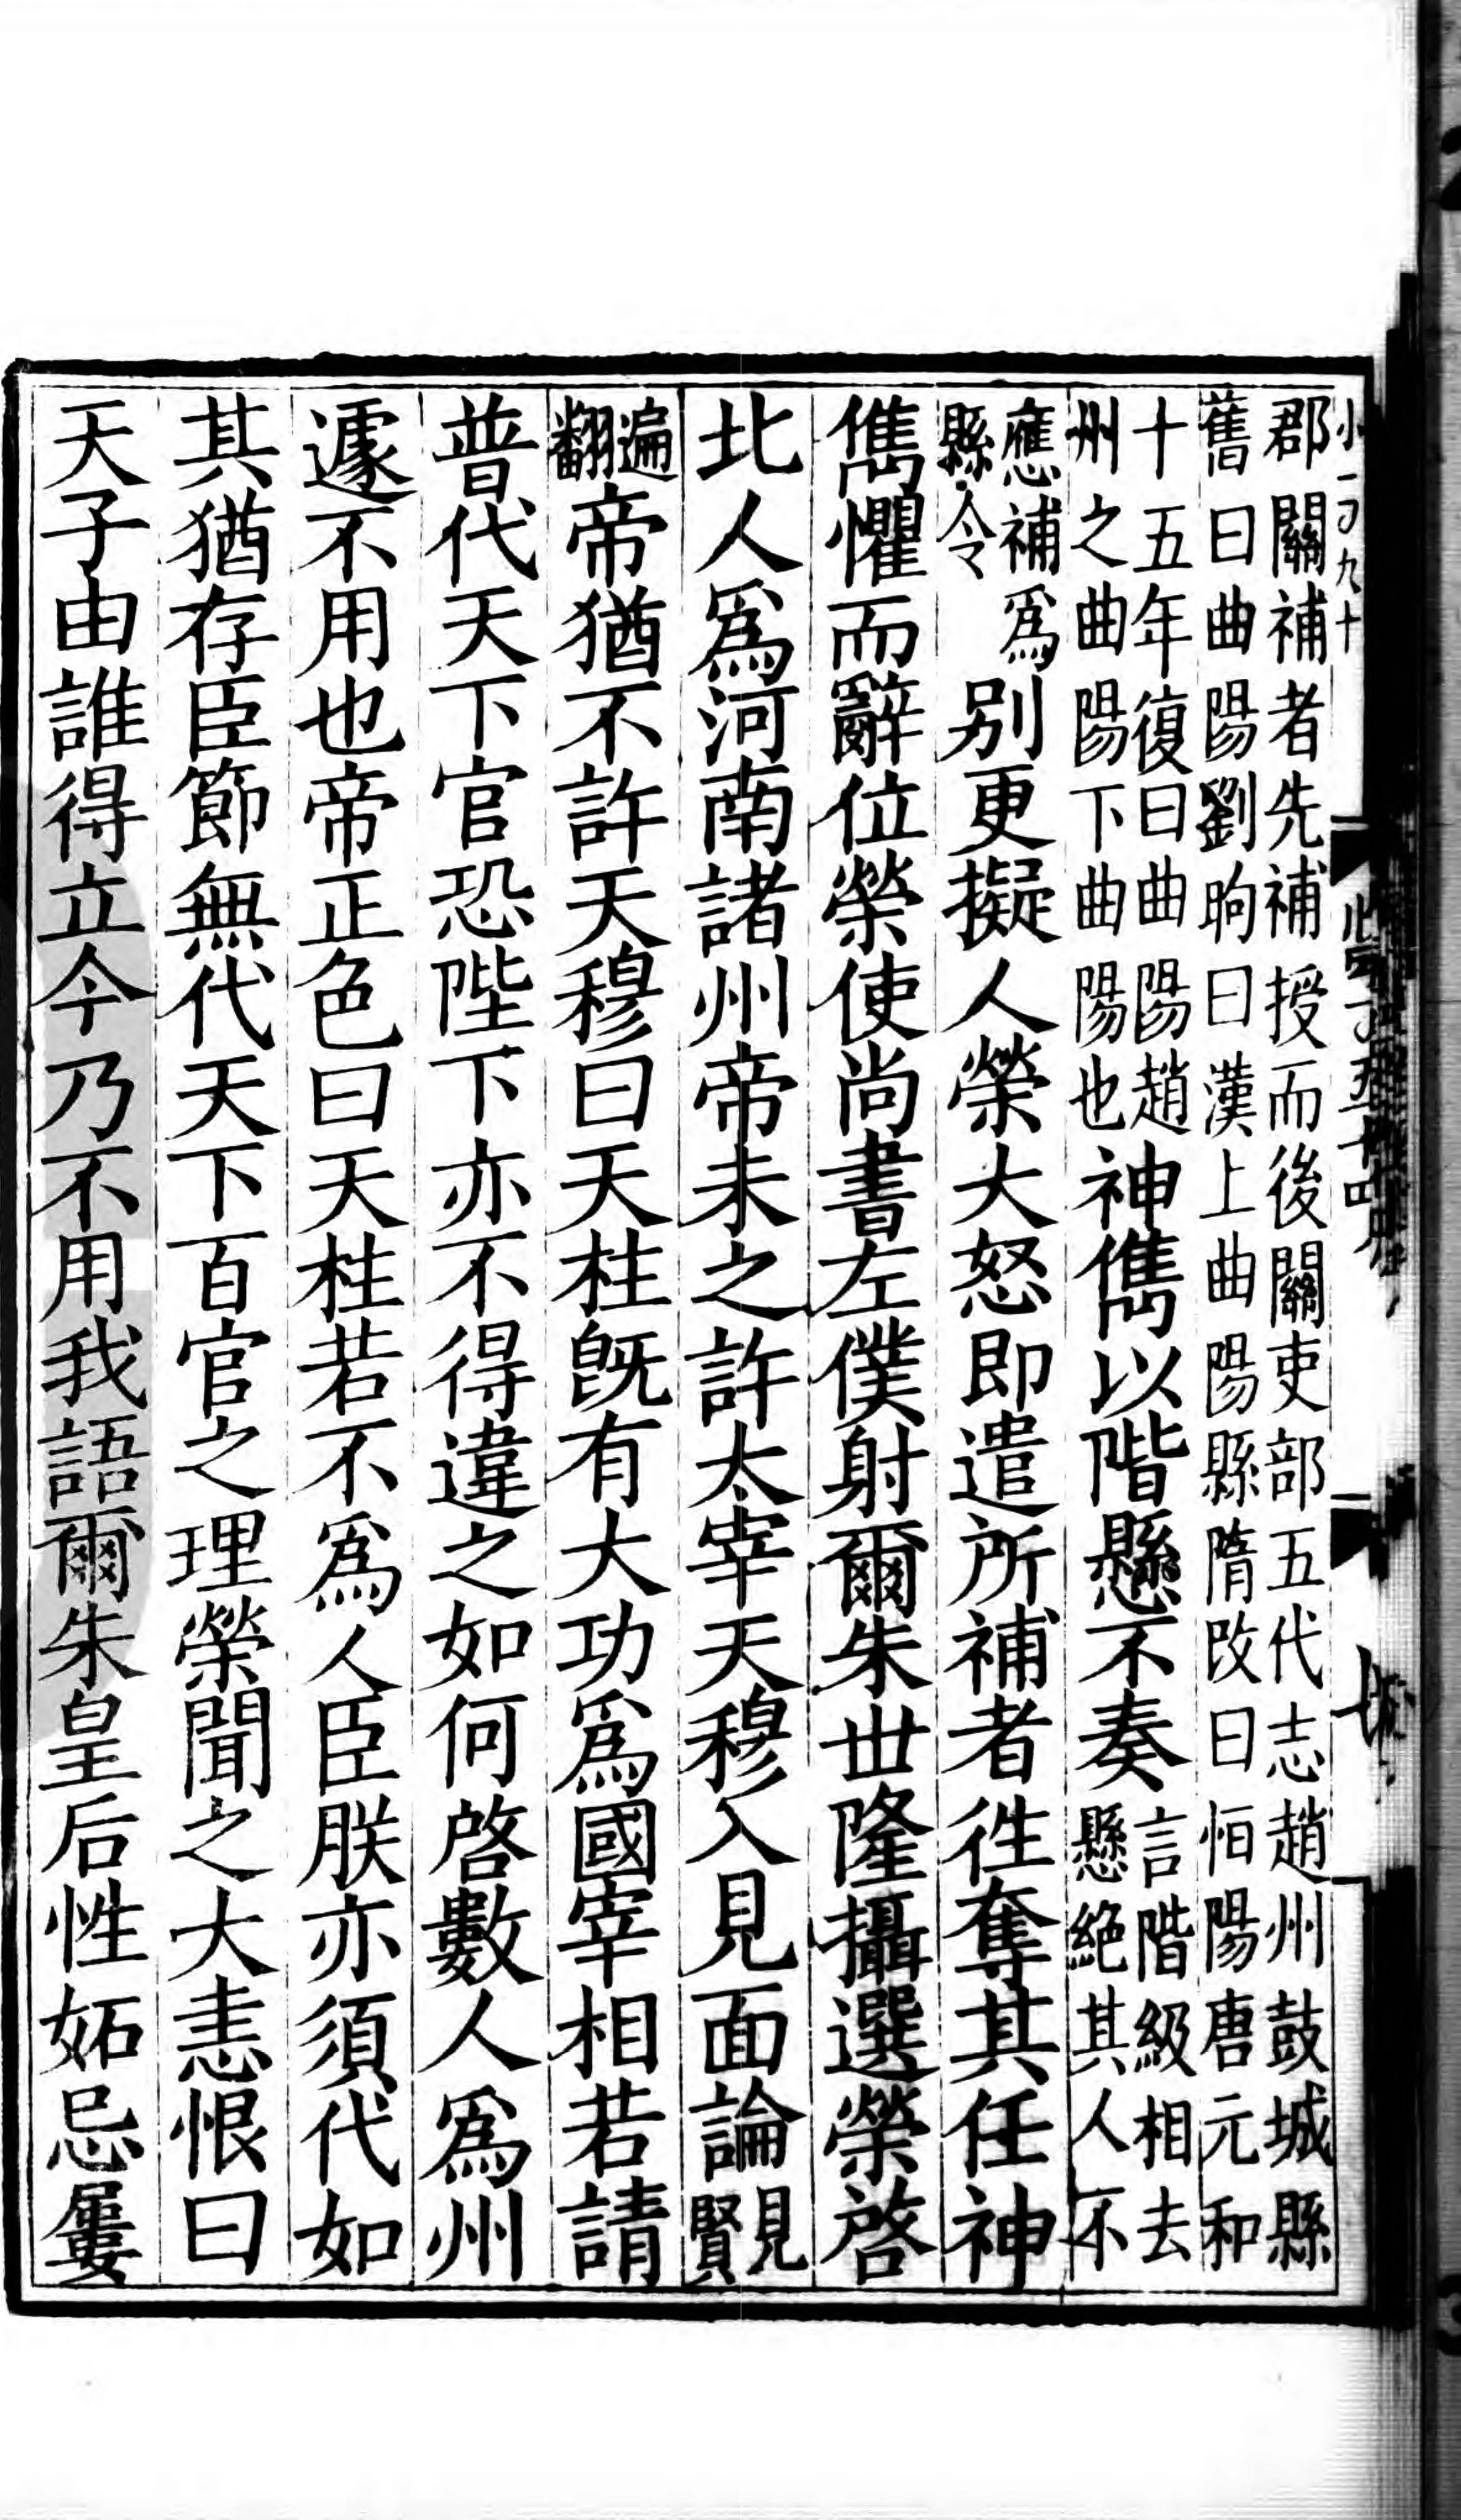 郡關補者先補授而後關吏部五代志趙州鼓城縣
舊曰曲陽劉昫曰漢上曲陽縣隋改曰恒陽唐元和
十五年復曰曲陽趙
州之曲陽下曲陽也
神儁以階懸不奏
言階級相去
懸絶其人不
應補爲
縣令
别更擬人榮大怒即遣所補者徃奪其任神
儁懼而辭位榮使尚書左僕射爾朱世隆攝選榮啓
北人爲河南諸州帝未之許太宰天穆入見面論
見賢
遍翻
帝猶不許天穆曰天柱旣有大功爲國宰相若請
普代天下官恐陛下亦不得違之如何啓數人爲州
遽不用也帝正色曰天柱若不爲人臣朕亦須代如
其猶存臣節無代天下百官之理榮聞之大恚恨曰
天子由誰得立今乃不用我語爾朱皇后性妬忌屢